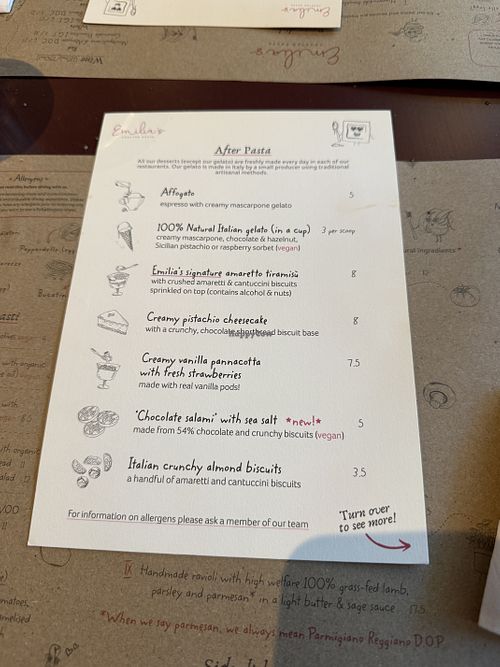 Emilia's
Emilia's
Emilia's
After Pasta
All our desserts (except our gelato) are freshly made every day in each of our
restaurants. Our gelato is made in Italy by a small producer using traditional
artisanal methods.
Affogato 5
espresso with creamy mascarpone gelato
100% Natural Italian gelato (in a cup) 3 per scoop
creamy mascarpone, chocolate & hazelnut,
Sicilian pistachio or raspberry sorbet (vegan)
Emilia's signature amaretto tiramisù 8
with crushed amaretti & cantuccini biscuits
sprinkled on top (contains alcohol & nuts)
Creamy pistachio cheesecake 8
with a crunchy, chocolate shortbread biscuit base
Creamy vanilla pannacotta 7.5
with fresh strawberries
made with real vanilla pods!
'Chocolate salami' with sea salt *new!* 5
made from 54% chocolate and crunchy biscuits (vegan)
Italian crunchy almond biscuits 3.5
a handful of amaretti and cantuccini biscuits
For information on allergens please ask a member of our team
Turn over
to see more!
Allergens
ingredients*
IX Handmade ravioli with high welfare 100% grass-fed lamb,
parsley and parmesan* in a light butter & sage sauce
*When we say parmesan, we always mean Parmigiano Reggiano D.O.P.